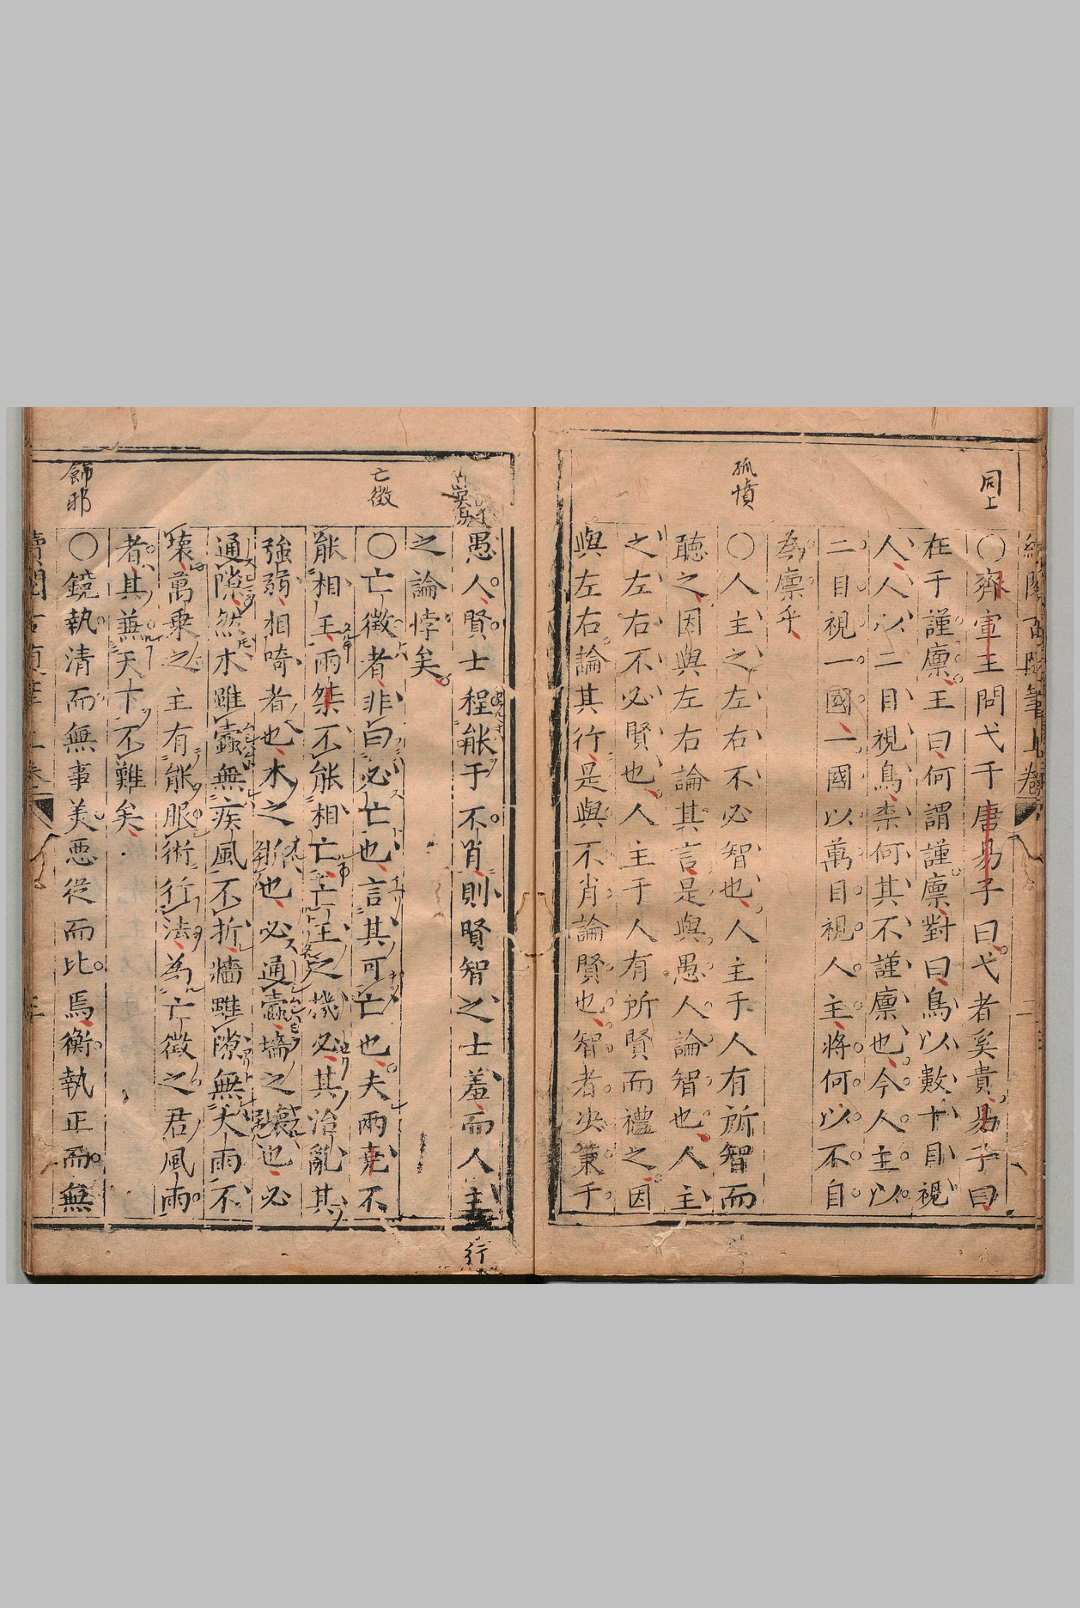 同上
○齊宣王問弋于唐易子曰弋者奚貴易子曰
在于謹廩王曰何謂謹廩對曰鳥以數十目視
人人以二目視鳥柰何其不謹廩也今人主以
二目視一國一國以萬目視人主將何以不自
為廩乎
孤憤
○人主之左右不必智也人主于人有所智而
聽之因與左右論其言是與愚人論智也人主
之左右不必賢也人主于人有所賢而禮之因
與左右論其行是與不肖論賢也智者决策于
愚人賢士程能于不肖則賢智之士羞而人主
行
之論悖矣
亡徵
○亡徵者非曰必亡也言其可亡也夫兩堯不
能相王兩桀不能相亡亡王之機必其治亂其
強弱相踦者也木之折也必通蠹墻之壞也必
通隙然木雖蠹無疾風不折墻雖隙無大雨不
壞萬乗之主有能服術行法為亡徵之君風雨
者其兼天下不難矣
飾邪
○鏡執清而無事美惡從而比焉衡執正而無